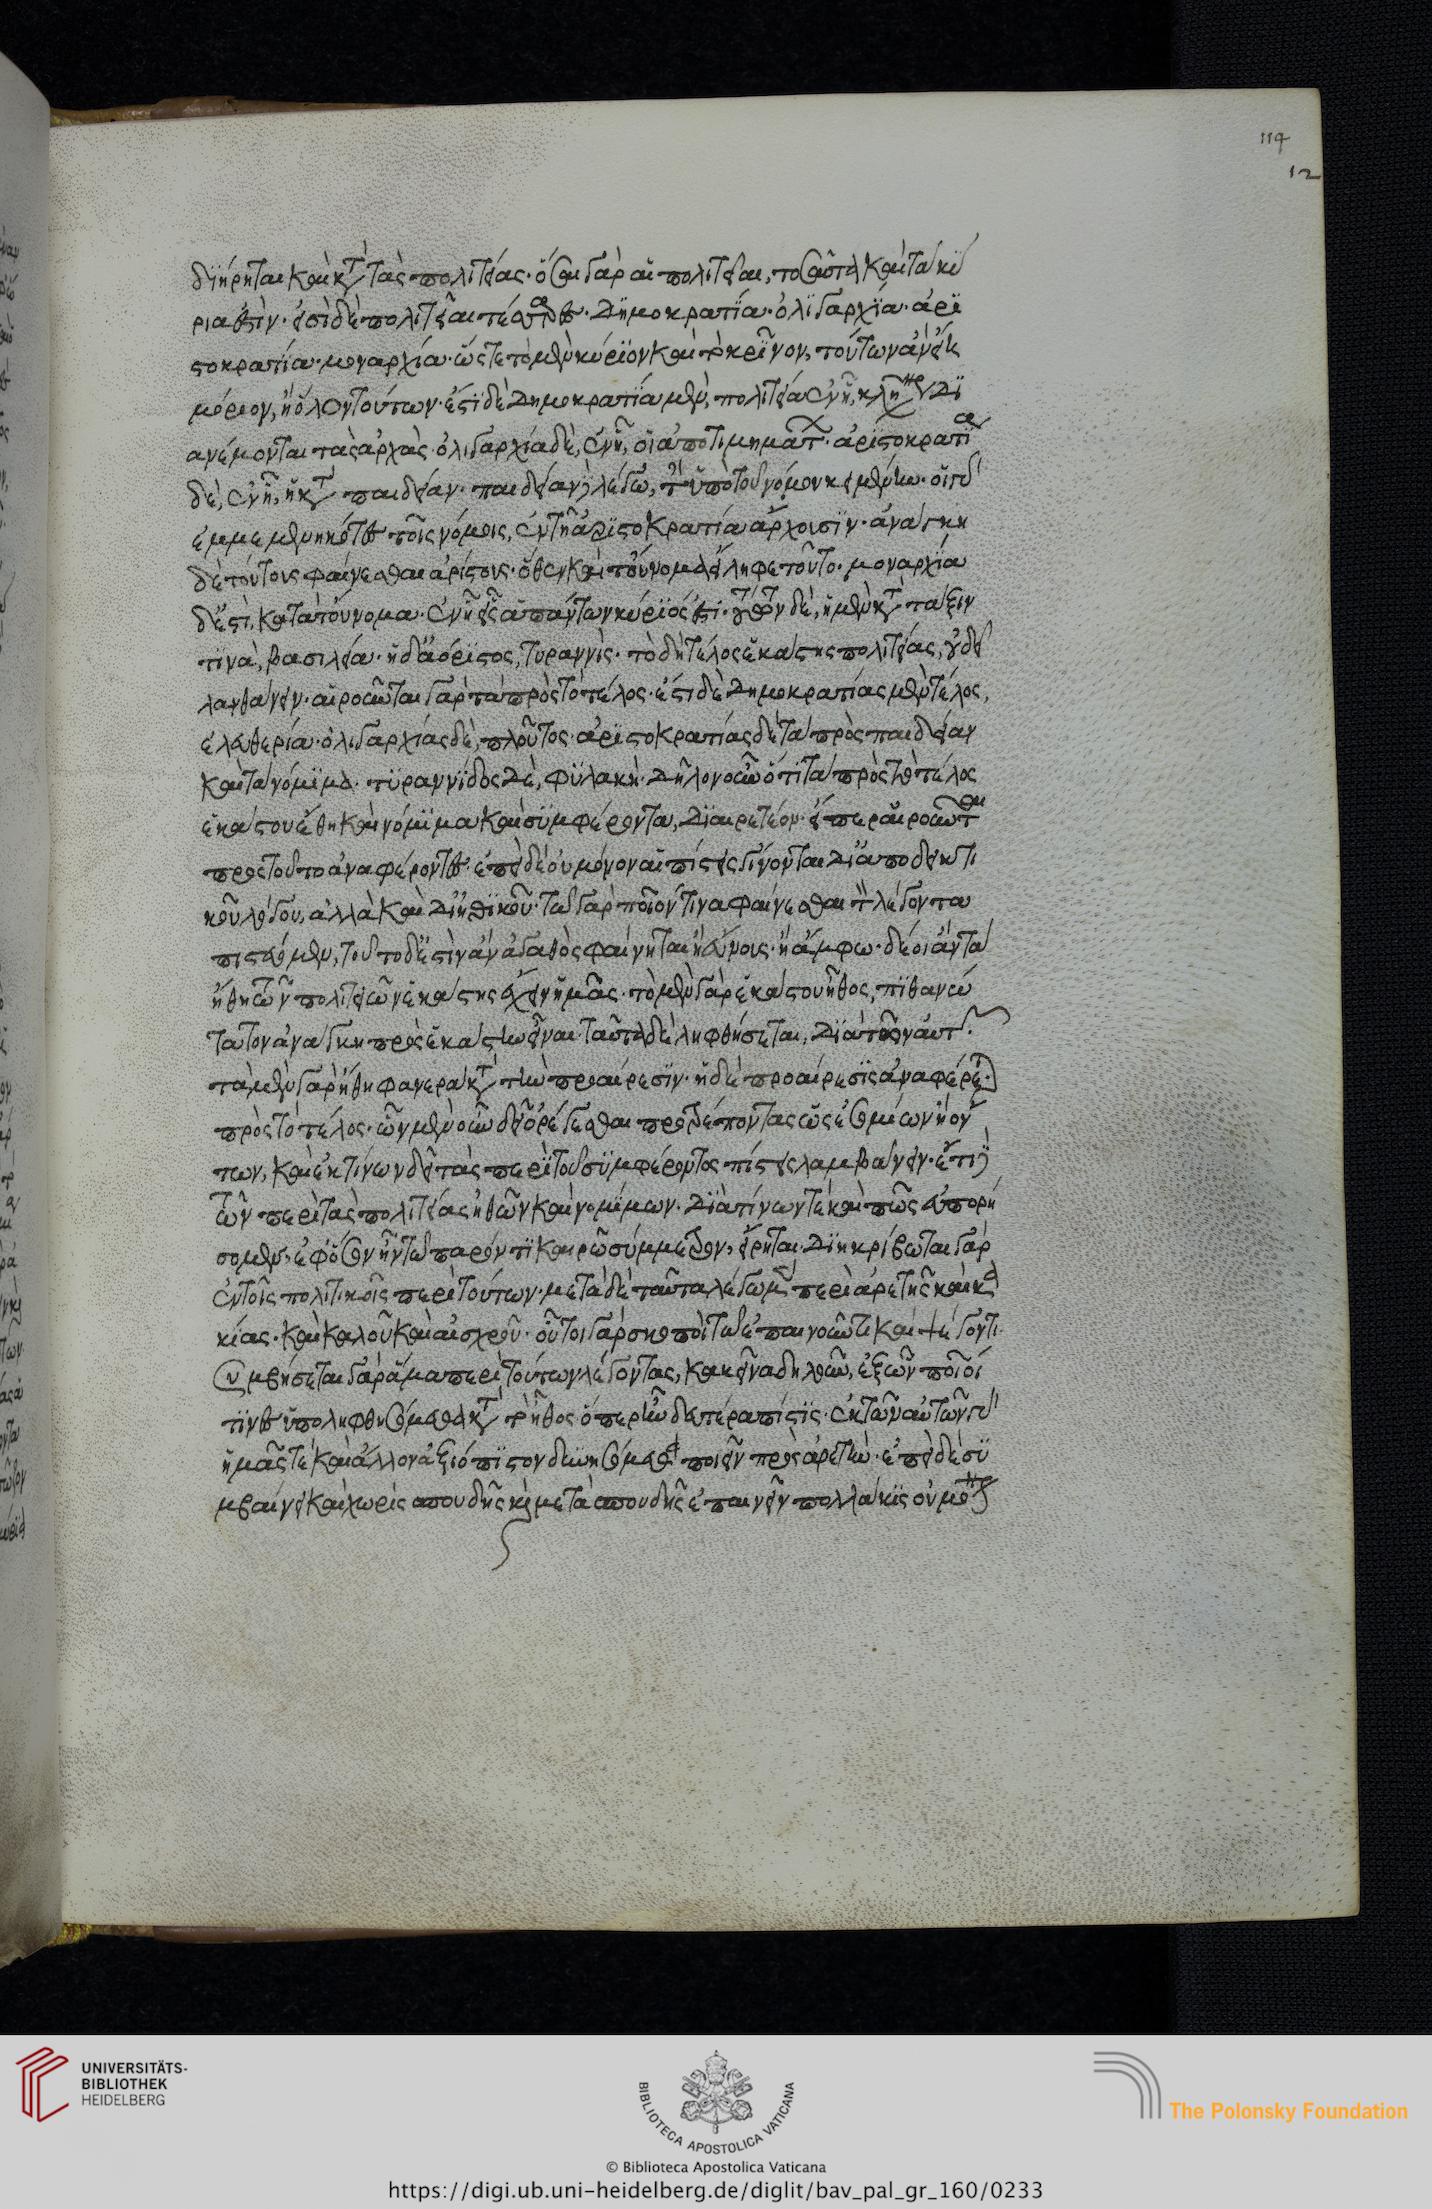 διήρηται καὶ κατὰ τὰς πολιτείας· ὅσαι γὰρ αἱ πολιτεῖαι, τοσαῦτα καὶ τὰ κύ
ριά ἐστιν· εἰσὶ δὲ πολιτεῖαι τέσσαρες· δημοκρατία· ὀλιγαρχία· ἀρι
στοκρατία· μοναρχία· ὥστε τὸ μὲν κύριον καὶ τὸ κρῖνον, τούτων ἂν εἴη
μόριον, ἢ ὅλον τούτων· ἔστι δὲ δημοκρατία μὲν, πολιτεία ἐν ᾗ, κλήρῳ δι
ανέμονται τὰς ἀρχὰς· ὀλιγαρχία δὲ, ἐν ᾗ, οἱ ἀπὸ τιμημάτων· ἀριστοκρατία
δὲ, ἐν ᾗ, ἡ κατὰ παιδείαν· παιδείαν δὲ λέγω, τὴν ὑπὸ τοῦ νόμου κειμένην· οἱ γὰρ
ἐμμεμενηκότες τοῖς νόμοις, ἐν τῇ ἀριστοκρατία ἄρχουσιν· ἀνάγκη
δὲ τούτους φαίνεσθαι ἀρίστους· ὅθεν καὶ τοὔνομα εἴληφε τοῦτο· μοναρχία
δ' ἐστὶ, κατὰ τοὔνομα· ἐν ᾗ εἷς ἁπάντων κύριός ἐστι· τούτων δὲ, ἡ μὲν κατὰ τάξιν
τινὰ, βασιλεία· ἡ δ' ἀόριστος, τυραννὶς· τὸ δὴ τέλος ἑκάστης πολιτείας, οὐ δεῖ
λανθάνειν· αἱροῦνται γὰρ τὰ πρὸς τὸ τέλος· ἔστι δὲ δημοκρατίας μὲν τέλος,
ἐλευθερία· ὀλιγαρχίας δὲ, πλοῦτος· ἀριστοκρατίας δὲ τὰ πρὸς παιδείαν
καὶ τὰ νόμιμα· τυραννίδος δὲ, φυλακὴ· δῆλον οὖν ὅτι τὰ πρὸς τὸ τέλος
ἑκάστου ἔθη καὶ νόμιμα καὶ συμφέροντα, διαιρετέον· εἴπερ αἱροῦνται
πρὸς τοῦτο ἀναφέροντες· ἐπεὶ δὲ οὐ μόνον αἱ πίστεις γίνονται δι' ἀποδεικτι
κοῦ λόγου, ἀλλὰ καὶ δι' ἠθικοῦ· τῷ γὰρ ποῖόν τινα φαίνεσθαι τὸν λέγοντα
πιστεύομεν, τοῦτο δ' ἐστὶν ἂν ἀγαθὸς φαίνηται ἢ εὔνους· ἢ ἄμφω· δέοι ἂν τὰ
ἤθη τῶν πολιτειῶν ἑκάστης ἔχειν ἡμᾶς· τὸ μὲν γὰρ ἑκάστου ἦθος, πιθανώ
τατον ἀνάγκη πρὸς ἑκάστην εἶναι· ταῦτα δὲ ληφθήσεται, διὰ τῶν αὐτῶν·
τὰ μὲν γὰρ ἤθη φανερὰ κατὰ τὴν προαίρεσιν· ἡ δὲ προαίρεσις ἀναφέρεται
πρὸς τὸ τέλος· ὧν μὲν οὖν δεῖ ὀρέγεσθαι προτρέποντας ὡς ἐσομένων ἢ ὄν
των, καὶ ἐκ τίνων δεῖ τὰς περὶ τοῦ συμφέροντος πίστεις λαμβάνειν· ἔτι δὲ
τῶν περὶ τὰς πολιτείας ἠθῶν καὶ νομίμων· διὰ τίνων τὲ καὶ πῶς εὐπορή
σομεν, ἐφ' ὅσον ἦν τῷ παρόντι καιρῷ σύμμετρον, εἴρηται· διηκρίβωται γὰρ
ἐν τοῖς πολιτικοῖς περὶ τούτων· μετὰ δὲ ταῦτα λέγωμεν περὶ ἀρετῆς καὶ κα
κίας· καὶ καλοῦ καὶ αἰσχροῦ· οὗτοι γὰρ σκοποὶ τῷ ἐπαινοῦντι καὶ ψέγοντι·
συμβήσεται γὰρ ἅμα περὶ τούτων λέγοντας, κἀκεῖνα δηλοῦν, ἐξ ὧν ποῖοί
τινες ὑποληφθησόμεθα κατὰ τὸ ἦθος ὅπερ ἦν δευτέρα πίστις· ἐκ τῶν αὐτῶν γὰρ
ἡμᾶς τὲ καὶ ἄλλον ἀξιόπιστον δυνησόμεθα ποιεῖν πρὸς ἀρετὴν· ἐπεὶ δὲ συ
μβαίνει καὶ χωρὶς σπουδῆς καὶ μετὰ σπουδῆς ἐπαινεῖν πολλάκις οὐ μόνον
114
12
UNIVERSITÄTS-
BIBLIOTHEK
HEIDELBERG
BIBLIOTECA APOSTOLICA VATICANA
The Polonsky Foundation
© Biblioteca Apostolica Vaticana
https://digi.ub.uni-heidelberg.de/diglit/bav_pal_gr_160/0233